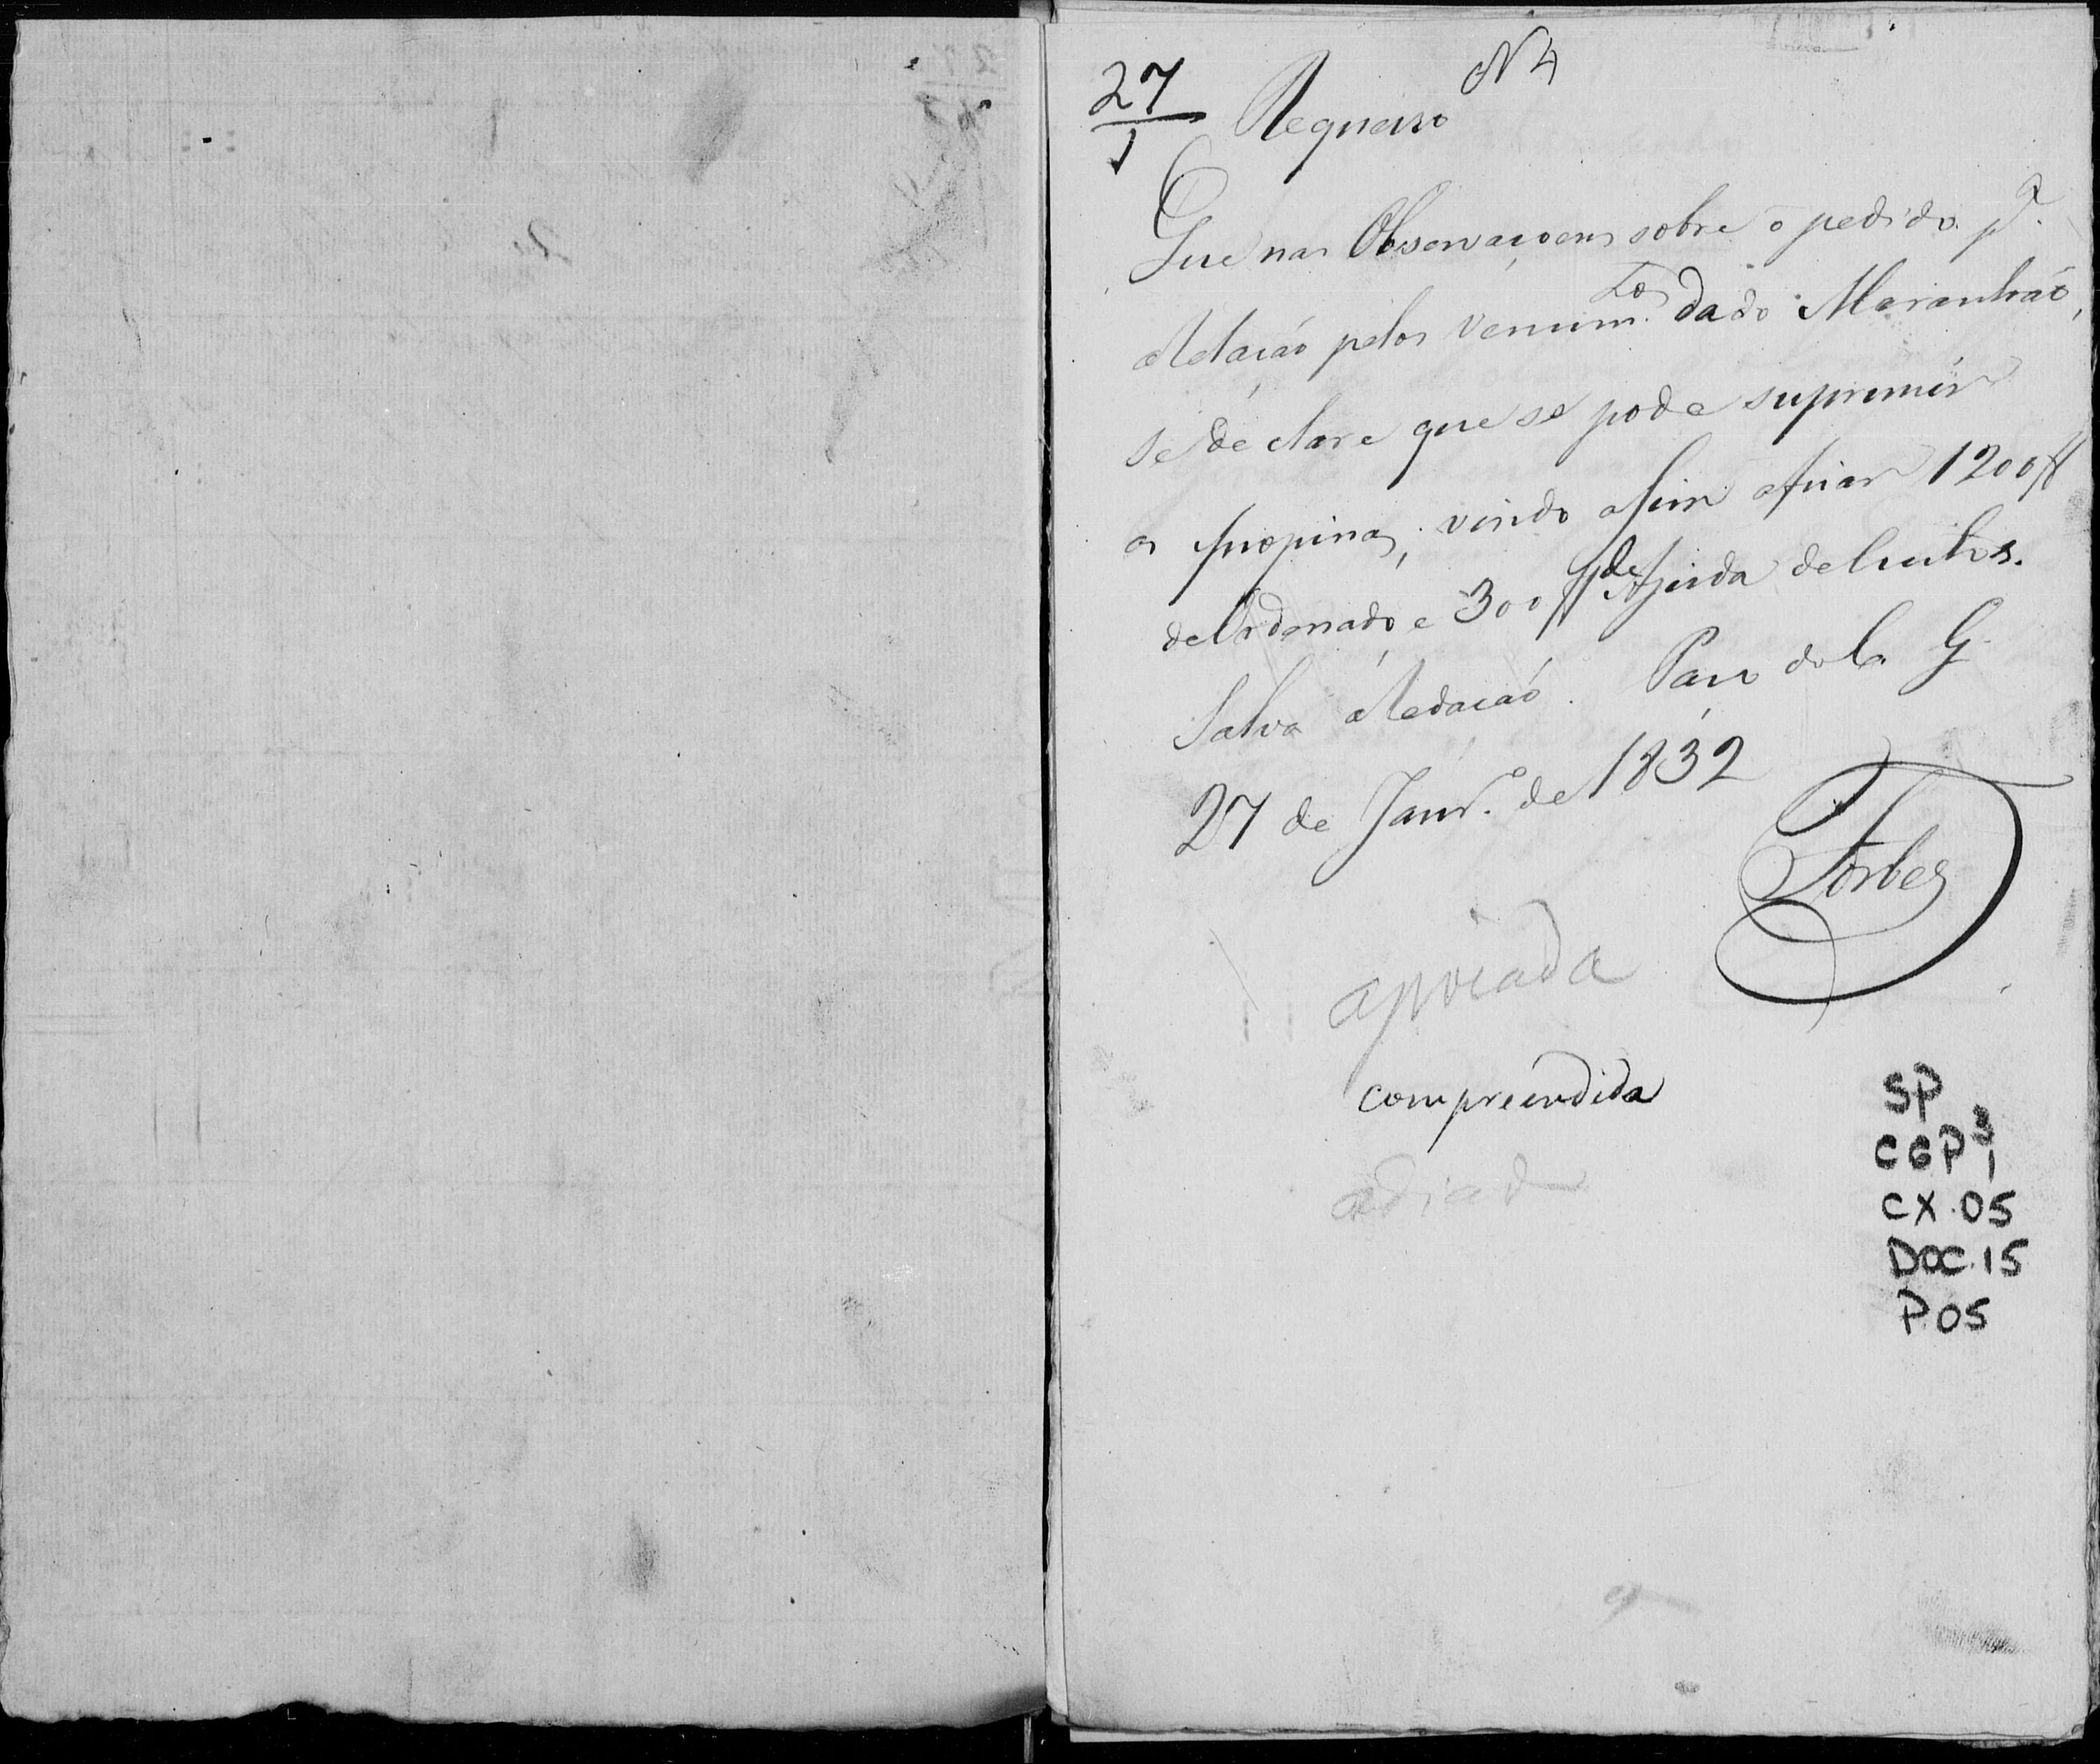 27
1
Nº 4
Requeiro
Que nas Observaçoens sobre o pedido pª.
a Relação pelos vencimtos. da do Maranhaõ,
se declare que se pode suprimir
as propinas, vindo assim a ficar 1200$
de Ordenado, e 300$ de Ajuda de Custos.
Salva a Redação. Paço do C. G.
27 de Janrº. de 1832
Torbes
apoiada
compreéndida
adiada
SP
CGP 3
1
CX.05
DOC.15
P.05